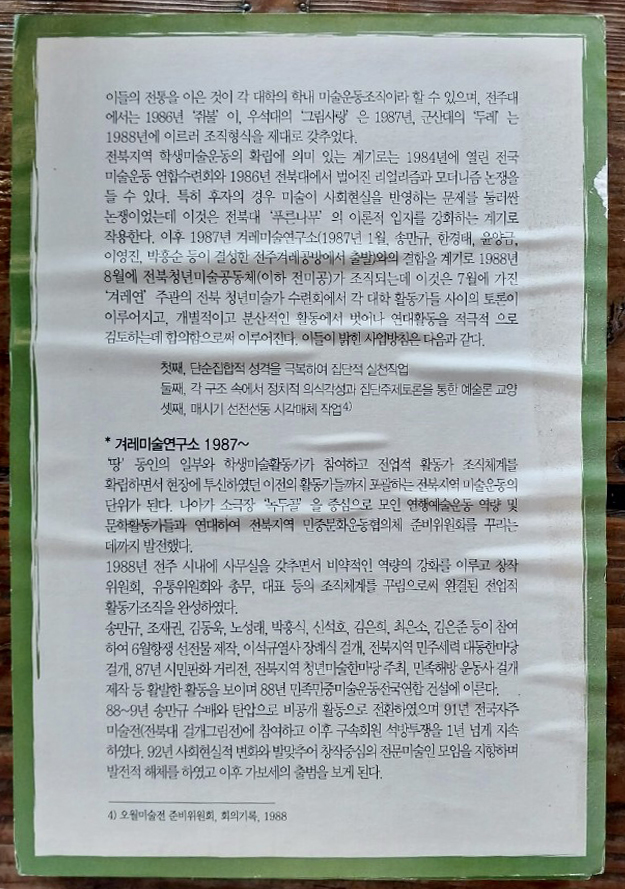 이들의 전통을 이은 것이 각 대학의 학내 미술운동조직이라 할 수 있으며, 전주대
에서는 1986년 '쥐불' 이, 우석대의 '그림사랑' 은 1987년, 군산대의 '두레' 는
1988년에 이르러 조직형식을 제대로 갖추었다.
전북지역 학생미술운동의 확립에 의미 있는 계기로는 1984년에 열린 전국
미술운동 연합수련회와 1986년 전북대에서 벌어진 리얼리즘과 모더니즘 논쟁을
들 수 있다. 특히 후자의 경우 미술이 사회현실을 반영하는 문제를 둘러싼
논쟁이었는데 이것은 전북대 '푸른나무' 의 이론적 입지를 강화하는 계기로
작용한다. 이후 1987년 겨레미술연구소(1987년 1월, 송만규, 한경태, 윤양금,
이영진, 박홍순 등이 결성한 전주겨레공방에서 출발)와의 결합을 계기로 1988년
8월에 전북청년미술공동체(이하 전미공)가 조직되는데 이것은 7월에 가진
'겨레연' 주관의 전북 청년미술가 수련회에서 각 대학 활동가들 사이의 토론이
이루어지고, 개별적이고 분산적인 활동에서 벗어나 연대활동을 적극적 으로
검토하는데 합의함으로써 이루어진다. 이들이 밝힌 사업방침은 다음과 같다.
첫째, 단순집합적 성격을 극복하여 집단적 실천작업
둘째, 각 구조 속에서 정치적 의식각성과 집단주제토론을 통한 예술론 교양
셋째, 매시기 선전선동 시각매체 작업4)
* 겨레미술연구소 1987~
'땅' 동인의 일부와 학생미술활동가가 참여하고 전업적 활동가 조직체계를
확립하면서 현장에 투신하였던 이전의 활동가들까지 포괄하는 전북지역 미술운동의
단위가 된다. 나아가 소극장 '녹두골' 을 중심으로 모인 연행예술운동 역량 및
문학활동가들과 연대하여 전북지역 민중문화운동협의체 준비위원회를 꾸리는
데까지 발전했다.
1988년 전주 시내에 사무실을 갖추면서 비약적인 역량의 강화를 이루고 창작
위원회, 유통위원회와 총무, 대표 등의 조직체계를 꾸림으로써 완결된 전업적
활동가조직을 완성하였다.
송만규, 조재권, 김동욱, 노성래, 박홍식, 신석호, 김은희, 최은소, 김은준 등이 참여
하여 6월항쟁 선전물 제작, 이석규열사 장례식 걸개, 전북지역 민주세력 대동한마당
걸개, 87년 시민판화 거리전, 전북지역 청년미술한마당 주최, 민족해방 운동사 걸개
제작 등 활발한 활동을 보이며 88년 민족민중미술운동전국연합 건설에 이른다.
88~9년 송만규 수배와 탄압으로 비공개 활동으로 전환하였으며 91년 전국자주
미술전(전북대 걸개그림전)에 참여하고 이후 구속회원 석방투쟁을 1년 넘게 지속
하였다. 92년 사회현실적 변화와 발맞추어 창작중심의 전문미술인 모임을 지향하며
발전적 해체를 하였고 이후 가보세의 출범을 보게 된다.
4) 오월미술전 준비위원회, 회의기록, 1988